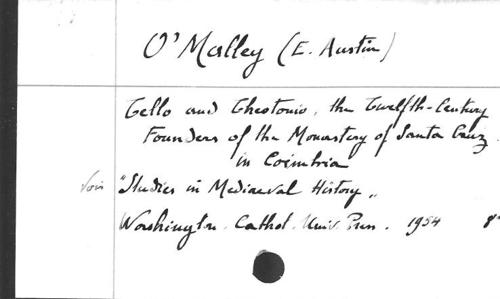 O'Malley (E. Austin)
Tello and Theotonio, the Twelfth-Century
Founders of the Monastery of Santa Cruz
in Coimbria
Voir "Studies in Mediaeval History„
Washington. Cathol. Univ. Press. 1954 8°